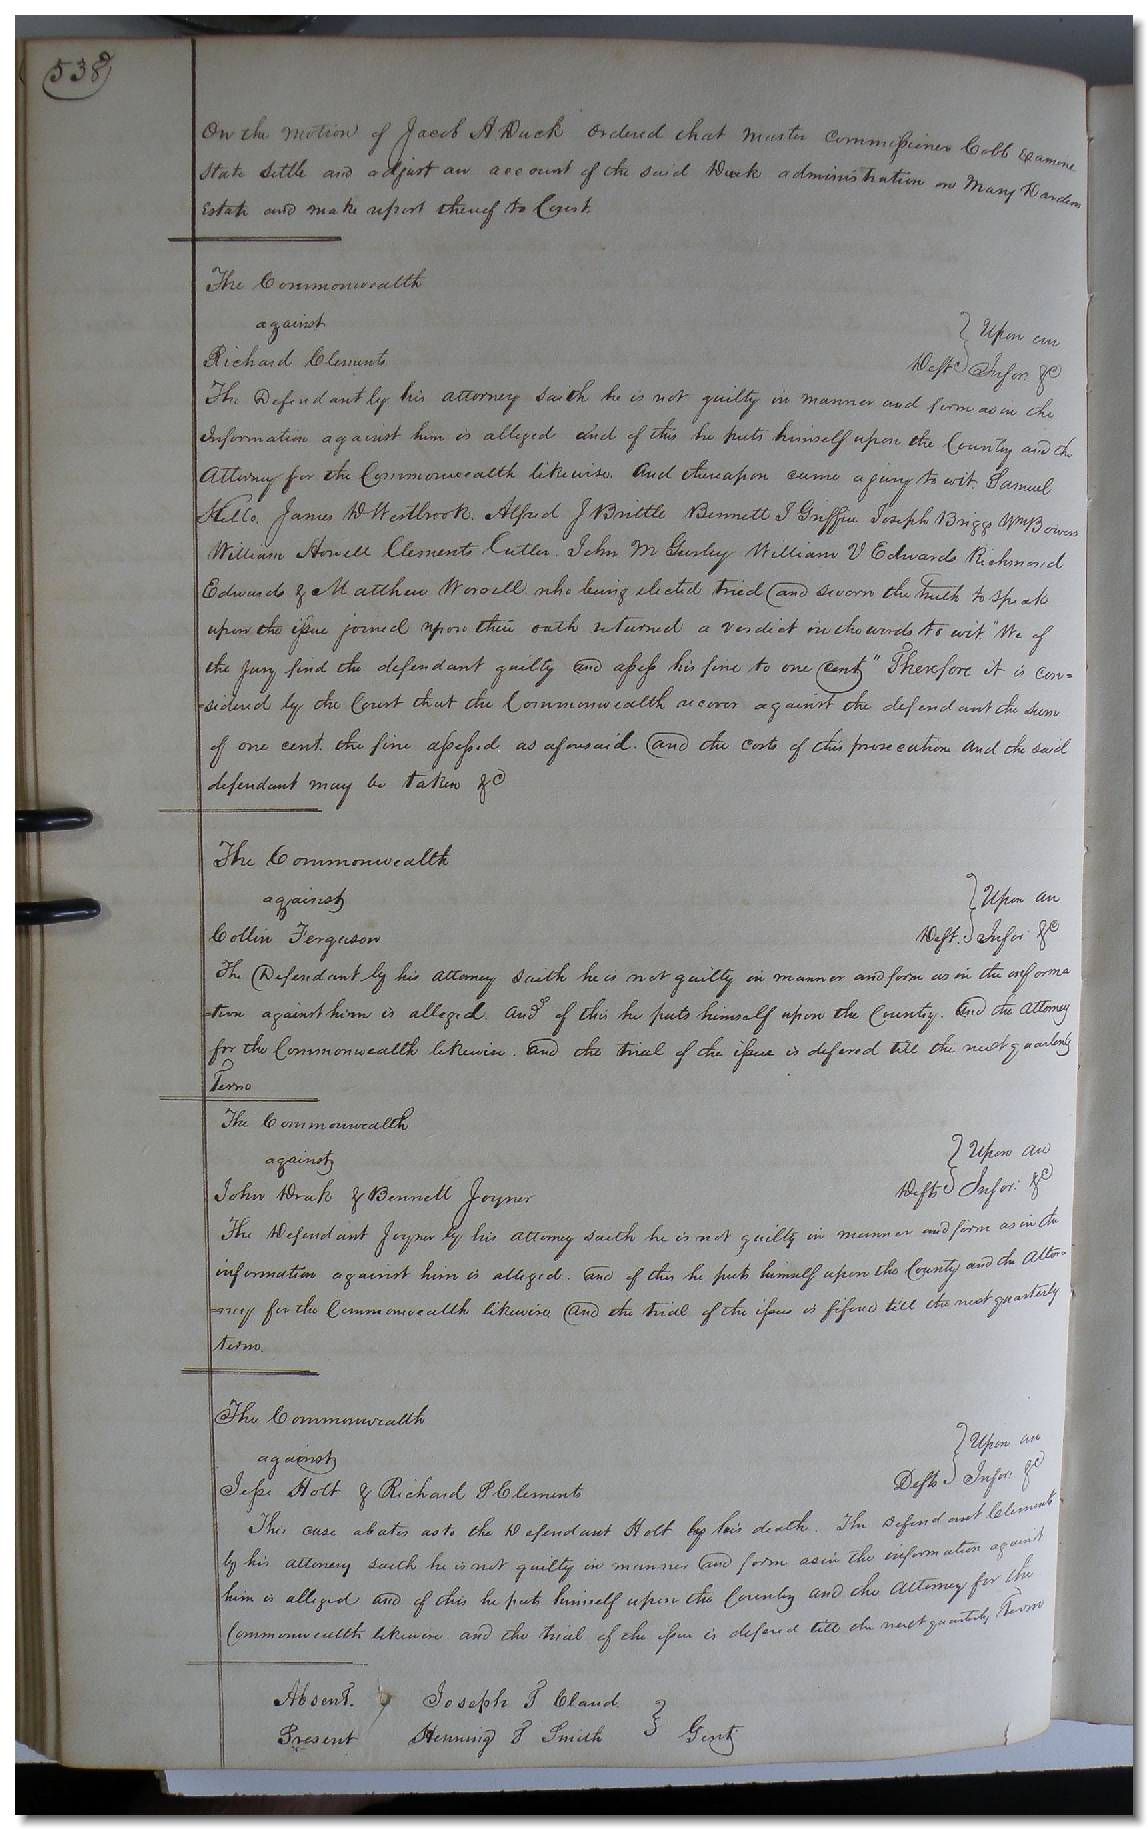 538
On the motion of Jacob A Duck Ordered that Master Commissioner Cobb Examine
State Settle and adjust an account of the said Duck administration on Mary Dardens
Estate and make report thereof to Court.
The Commonwealth
against
Richard Clements Deft } Upon an Infor: &c
The Defendant by his attorney saith he is not guilty in manner and form as in the
Information against him is alleged and of this he puts himself upon the Country and the
Attorney for the Commonwealth likewise. And thereupon came a jury to wit. Samuel
James D Westbrook. Alfred J Brittle Bennett J Griffin Joseph Briggs Wm Bowers
William Howell Clements Cutler. John M Gurley William V Edwards Richmond
Edwards & Matthew Worrell who being elected tried and sworn the truth to speak
upon the issue joined upon their oath returned a verdict in the words to wit "We of
the jury find the defendant guilty and assess his fine to one cent" Therefore it is con=
=sidered by the Court that the Commonwealth recover against the defendant the sum
of one cent. the fine assessed. as aforesaid. and the costs of this prosecution and the said
defendant may be taken &c
The Commonwealth
against
Collin Ferguson Deft. } Upon an Infor: &c
The Defendant by his attorney saith he is not guilty in manner and form as in the informa
=tion against him is alleged. and of this he puts himself upon the Country. and the attorney
for the Commonwealth likewise. and the trial of the issue is defered till the next quarterly
Term
The Commonwealth
against
John Drak & Bennett Joyner Defts } Upon an Infor: &c
The Defendant Joyner by his attorney saith he is not guilty in manner and form as in the
information against him is alleged. and of this he puts himself upon the County and the Attor=
=ney for the Commonwealth likewise and the trial of the issue is till the next quarterly
term.
The Commonwealth
against
Jesse Holt & Richard P Clements Defts } Upon an Infor: &c
This case abates as to the Defendant Holt by his death. The defendant Clements
by his attorney saith he is not guilty in manner and form as in the information against
him is alleged and of this he puts himself upon the Country and the Attorney for the
Commonwealth likewise and the trial of the issue is defered till the next quarterly Term
Absent. Joseph T Claud
Present Henning T Smith } Gent